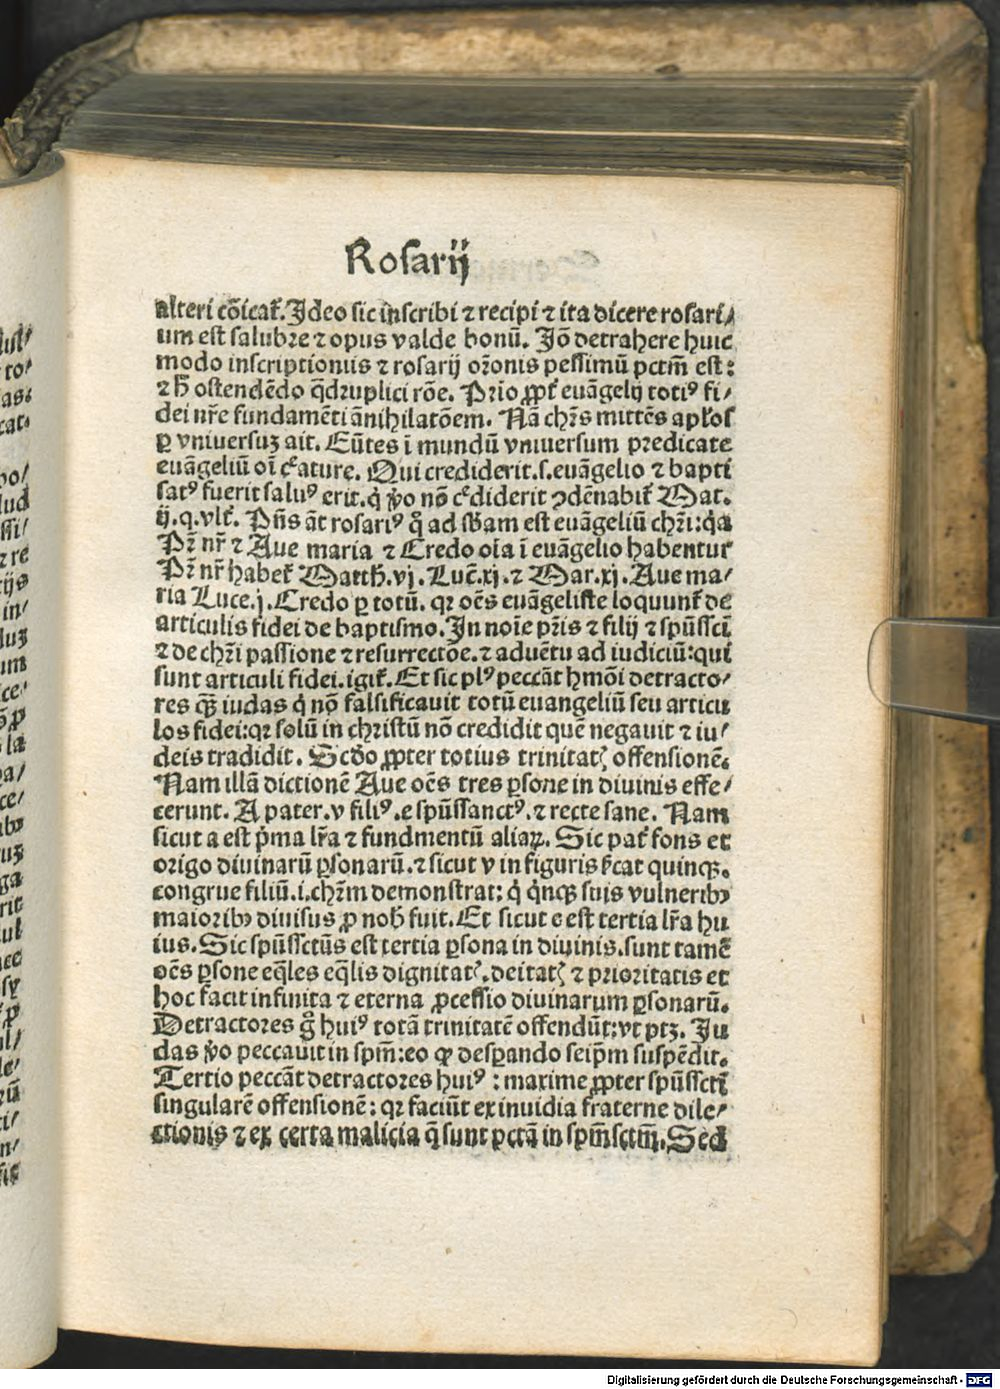 Rosarij
alteri cōicat᷑. Ideo sic inscribi ⁊ recipi ⁊ ita dicere rosari/
um est salubre ⁊ opus valde bonū. Iō detrahere huic
modo inscriptionis ⁊ rosarij orōnis pessimū pctm̄ est:
⁊ ħ ostendēdo q̄druplici rōe. Prīo ꝓpt᷑ euāgelij totiꝰ fi/
dei nr̄e fundamēti ānihilatōem. Nā chr̄s mittēs apl̓os
ꝑ vniuersuꝫ ait. Eūtes ī mundū vniuersum predicate
euāgeliū oī c᷑ature. Qui crediderit.s.euāgelio ⁊ bapti
satꝰ fuerit saluꝰ erit.q̇ ꝟo nō c᷑diderit ꝯdēnabit᷑ Mar.
ij.q.vlt᷑. Pn̄s āt rosariꝰ q̊ ad sb̄am est euāgeliū chr̄i:q̇a
Pr̄ nr̄ ⁊ Aue maria ⁊ Credo oīa ī euāgelio habentur
Pr̄ nr̄ habet᷑ Matth̄.vj.Luc̄.xj.⁊ Mar.xj.Aue ma/
ria Luce.j.Credo ꝑ totū. qꝛ oēs euāgeliste loquunt᷑ de
articulis fidei de baptismo.In noīe pr̄is ⁊ filij ⁊ spūs̄sc̄i
⁊ de chr̄i passione ⁊ resurrectōe.⁊ aduētu ad iudiciū:qui
sunt articuli fidei.igit᷑.Et sic plꝰ peccāt hmōi detracto/
res qꝫ̄ iudas q̇ nō falsificauit totū euangeliū seu articu
los fidei:qꝛ solū in christū nō credidit quē negauit ⁊ iu/
deis tradidit. Scd̄o ꝓpter totius trinitatꝭ offensionē.
Nam illā dictionē Aue oēs tres ꝑsone in diuinis effe/
cerunt. A pater.v filiꝰ.e spūssanctꝰ.⁊ recte sane. Nam
sicut a est p̄ma lr̄a ⁊ fundmentū aliaꝝ. Sic pat᷑ fons et
origo diuinarū ꝑsonarū.⁊ sicut v in figuris sc̄at quinqꝫ.
congrue filiū.i.chr̄m demonstrat: q̇ q̇nqꝫ suis vulneribꝰ
maioribꝰ diuisus ꝓ nob̄ fuit. Et sicut e est tertia lr̄a hu
ius.Sic spūs̄sctūs est tertia ꝑsona in diuinis.sunt tamē
oēs ꝑsone eq̄les eq̄lis dignitatꝭ.deitatꝭ ⁊ prioritatis et
hoc facit infinita ⁊ eterna ꝓcessio diuinarum ꝑsonarū.
Detractores g̊ huiꝰ totā trinitatē offendūt:vt ptꝫ. Iu
das ꝟo peccauit in spm̄:eo ꝙ desꝑando seip̄m suspēdit.
Tertio peccāt detractores huiꝰ : maxime ꝓpter spūs̄scti
singularē offensionē: qꝛ faciūt ex inuidia fraterne dile/
ctionis ⁊ ex certa malicia q̄ sunt pctā in spm̄sctm̄.Sed
Digitalisierung gefördert durch die Deutsche Forschungsgemeinschaft - DFG